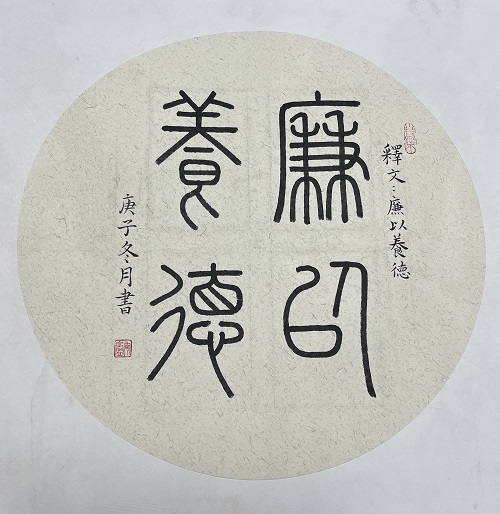 釋文：廉以養德
廉以
養德
庚子冬月書